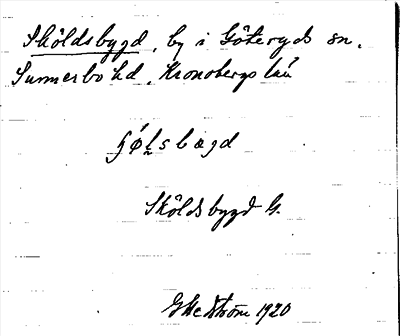 Sköldsbygd, by i Göteryds sn,
Sunnerbo hd, Kronobergs län
Sköldsbygd G.
G Hedström 1920